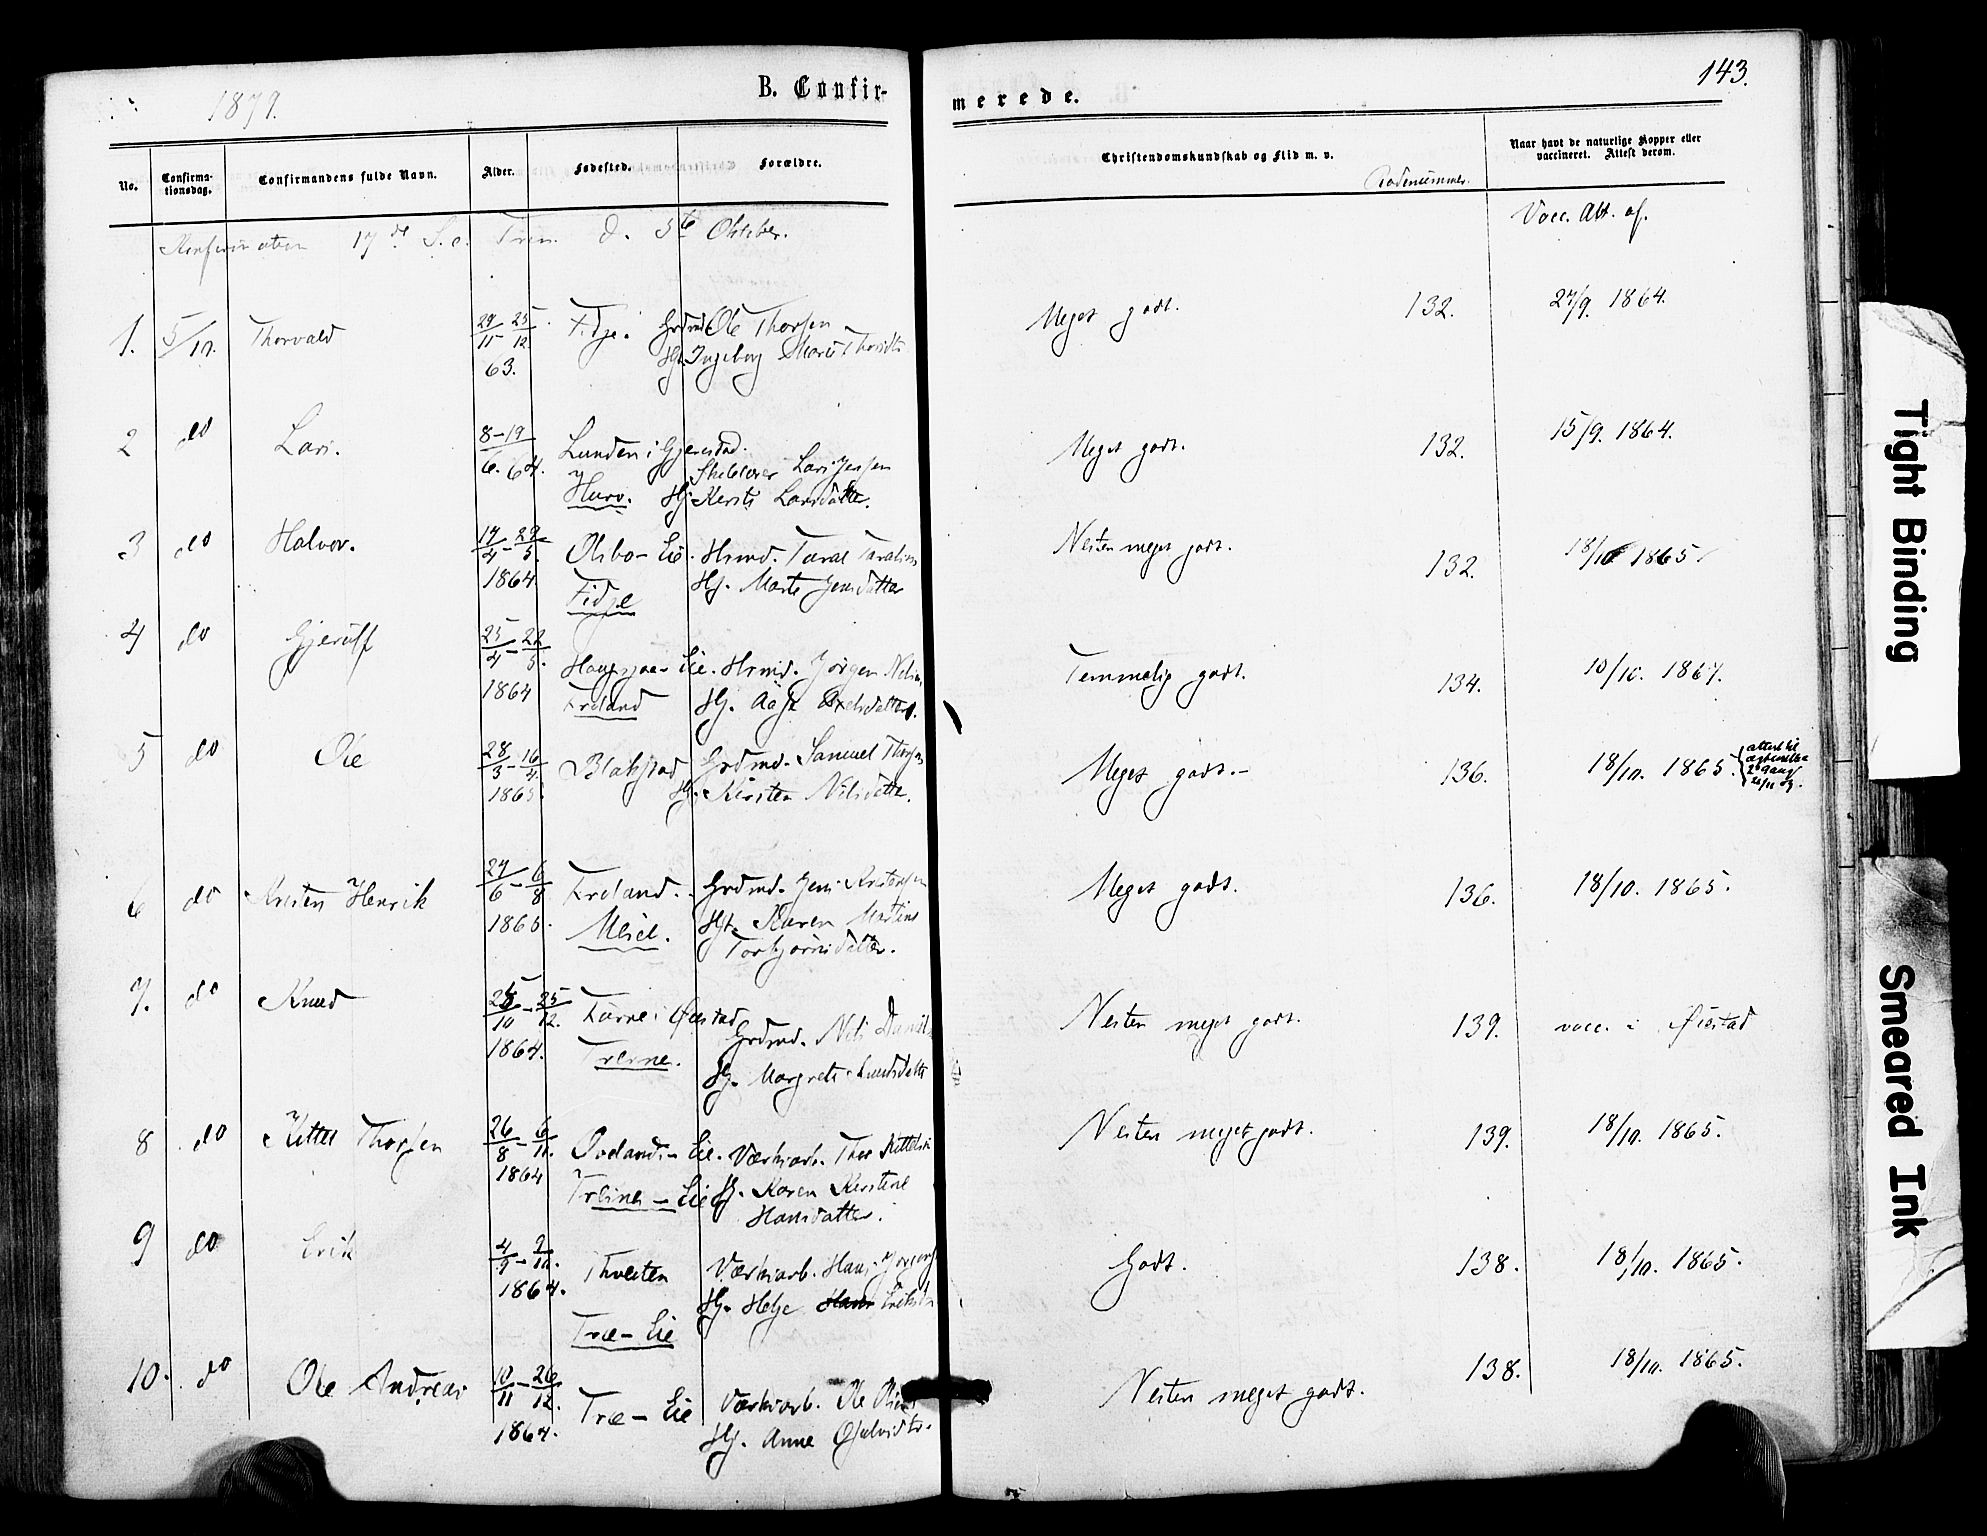 1879.
B. Confir-
merede.
143.
No.
Confirma-
tionsdag.
Confirmandens fulde Navn.
Alder.
Fødested.
Forældre.
Christendomskundskab og Flid m. v.
Rodenummer.
Naar havt de naturlige Kopper eller
vaccineret. Attest derom.
Konfirmation 17de S. e. Trin. d. 5te Oktober.
Vacc. Att. af.
1. 5/10. Thorvald 29/11 25/12 63. Fidje. Grdmd Ole Thorsen
Hst. Ingeborg Marie
Meget godt. 132. 27/9. 1864.
2 do Lars. 8-19/6. 64. Lunden i Gjerestad.
Hurv. Lars Jensen
Hj. Kerste Larsdatter.
Meget godt. 132. 15/9. 1864.
3 do Halvor. 17/4-29/5. 1864 Olsbo-Eie. Hsmd. Taral Taralsen
Fidje Hj. Marte Jensdatter
Nesten meget godt. 132. 18/10 1865.
4 do Gjerulf 25/4-22/5. 1864 Eie. Hsmd. Jørgen Nilsen
Froland Hj. Aase Axelsdatter.
Temmelig godt. 134. 10/10. 1867.
5 do Ole 28/3-16/4. 1865. Blakstad Grdmd. Samuel Thorsen
Hj. Kirsten Nilsdatter.
Meget godt.- 136. 18/10. 1865.
6 do Kristen Henrik 27/6-6/8 1865. Froland. Grdmd. Jens Kristensen
Mesel. Hst. Karen Martine
Torbjørnsdatter.
Meget godt. 136. 18/10. 1865.
7. do Knud 25/12. 1864. Furre i Øiestad
Treine. Grdmd. Nils
Hj. Margrete Knudsdatter
Nesten meget godt. 139. vacc. i Øiestad
8 do Kittel Thorsen 26/8-6/11. 1864 Ovelands-Eie. Værksarb. Thor Kittelsen
Treine-Eie Hj. Karen Kirstine
Hansdatter.
Nesten meget godt. 139. 18/10. 1865.
9 do Erik 1864. Thveiten Værksarb. Hans
Træ-Eie Hj. Helje
Godt. 138. 18/10. 1865.
10. do Ole Andreas 10/11-26/12. 1864. Træ-Eie Værksarb. Ole Olsen
Hj. Anne
Nesten meget godt. 138. 18/10. 1865.
Tight Binding
Smeared Ink